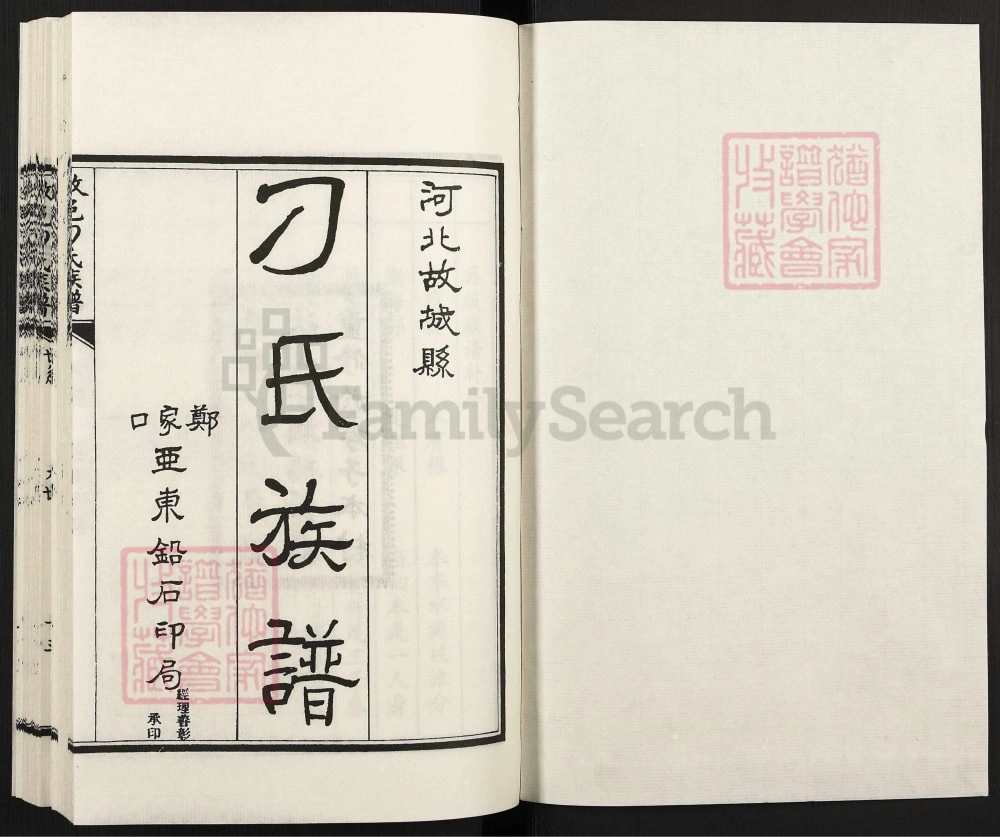 河北故城縣
刁氏族譜
鄭家口亞東鉛石印局
經理春彰
承印
故邑刁氏族譜
猶他家譜學會收藏
猶他家譜學會收藏
FamilySearch